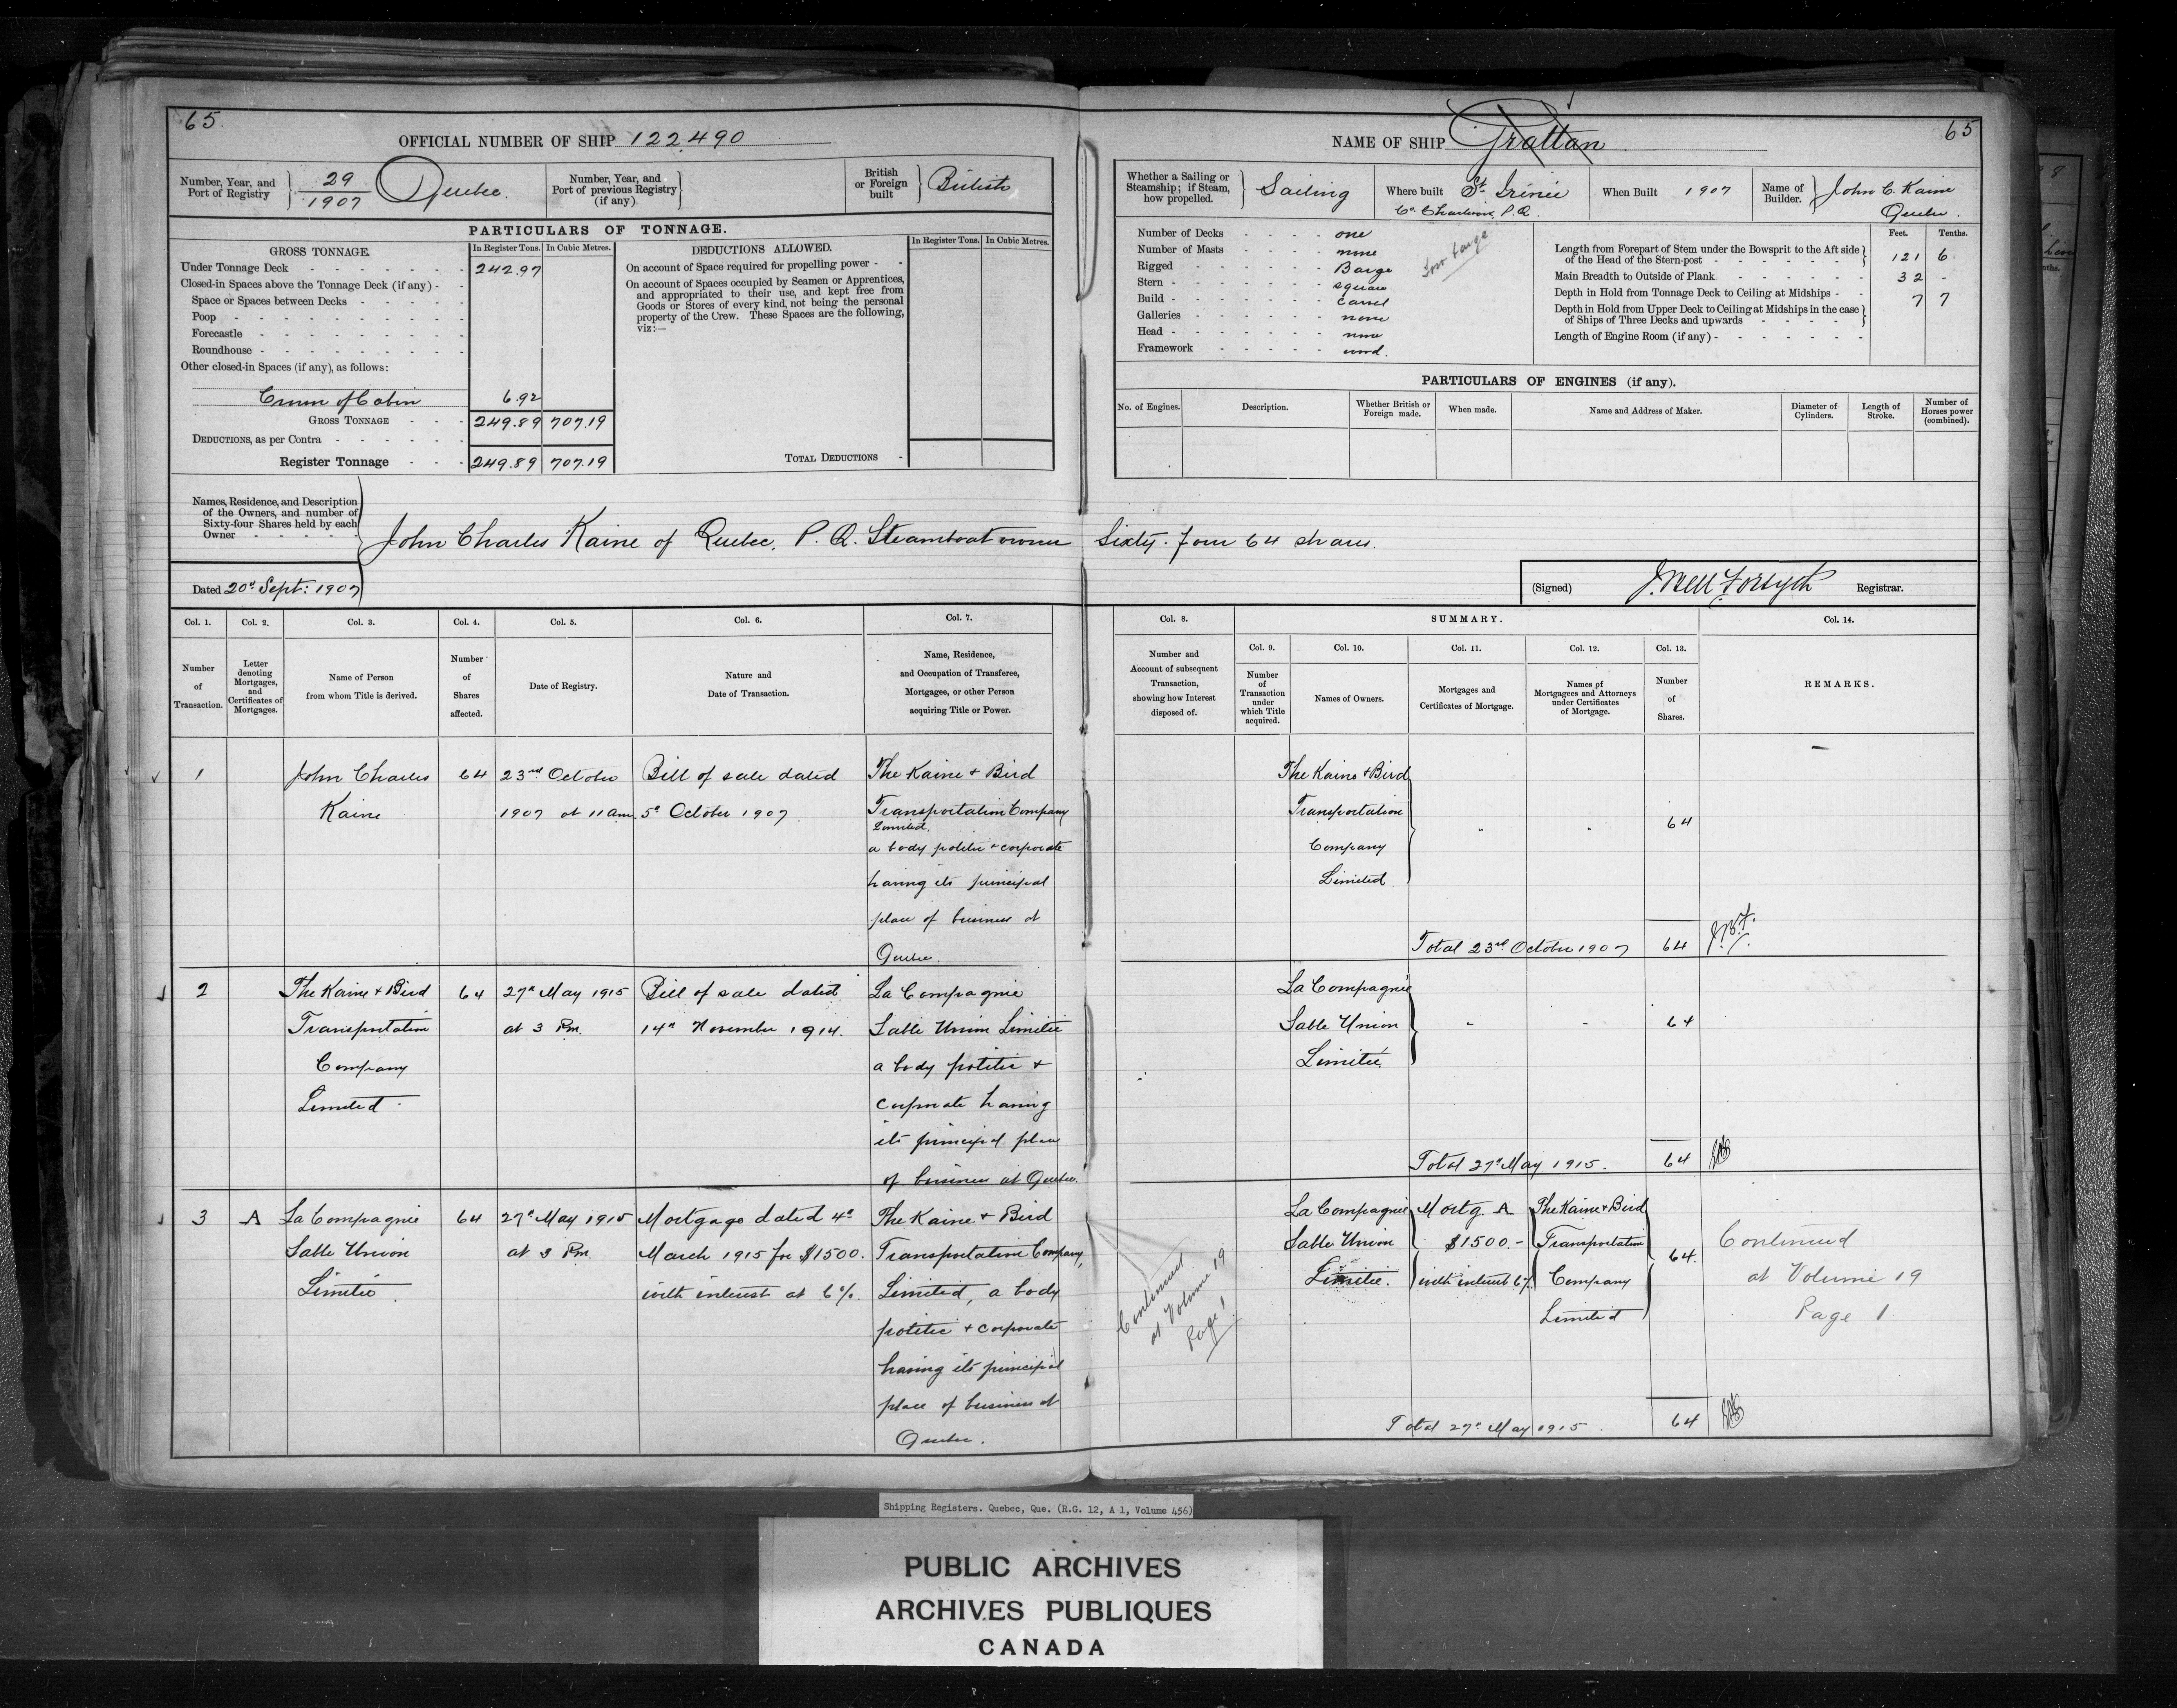 65.
OFFICIAL NUMBER OF SHIP 122,490
Number, Year, and
Port of Registry
29
1907
Quebec.
Number, Year, and
Port of previous Registry
(if any)
British
or Foreign
built
British
PARTICULARS OF TONNAGE.
GROSS TONNAGE.
In Register Tons.
In Cubic Metres.
Under Tonnage Deck 242.97
Closed-in Spaces above the Tonnage Deck (if any) -
Space or Spaces between Decks
Poop
Forecastle
Roundhouse
Other closed-in Spaces (if any), as follows:
Crown of Cabin 6.92
GROSS TONNAGE 249.89 707.19
DEDUCTIONS, as per Contra
Register Tonnage 249.89 707.19
DEDUCTIONS ALLOWED.
In Register Tons. In Cubic Metres.
On account of Space required for propelling power -
On account of Spaces occupied by Seamen or Apprentices,
and appropriated to their use, and kept free from
Goods or Stores of every kind, not being the personal
property of the Crew. These Spaces are the following,
viz:—
TOTAL DEDUCTIONS -
Names, Residence, and Description
of the Owners, and number of
Sixty-four Shares held by each
Owner
John Charles Kaine of Quebec, P. Q. Steamboat owner Sixty-four 64 shares.
Dated 20th Sept: 1907
NAME OF SHIP Grattan
65
Whether a Sailing or
Steamship; if Steam,
how propelled.
Sailing
Where built St. Irénée
Co. Charlevoix, P.Q.
When Built 1907
Name of
Builder.
John C. Kaine
Quebec.
Number of Decks one
Number of Masts none
Rigged Barge
Stern square
Build carvel
Galleries none
Head none
Framework wood.
Tow barge
Feet. Tenths.
Length from Forepart of Stem under the Bowsprit to the Aft side
of the Head of the Stern-post 121 6
Main Breadth to Outside of Plank 32 -
Depth in Hold from Tonnage Deck to Ceiling at Midships 7 7
Depth in Hold from Upper Deck to Ceiling at Midships in the case
of Ships of Three Decks and upwards
Length of Engine Room (if any)
PARTICULARS OF ENGINES (if any).
No. of Engines.
Description.
Whether British or
Foreign made.
When made.
Name and Address of Maker.
Diameter of
Cylinders.
Length of
Stroke.
Number of
Horses power
(combined).
(Signed) J. Bell Forsyth Registrar.
Col. 1. Col. 2. Col. 3. Col. 4. Col. 5. Col. 6. Col. 7.
Number
of
Transaction.
Letter
denoting
Mortgages,
and
Certificates of
Mortgages.
Name of Person
from whom Title is derived.
Number
of
Shares
affected.
Date of Registry.
Nature and
Date of Transaction.
Name, Residence,
and Occupation of Transferee,
Mortgagee, or other Person
acquiring Title or Power.
Col. 8.
Number and
Account of subsequent
Transaction,
showing how Interest
disposed of.
SUMMARY.
Col. 9.
Number
of
Transaction
under
which Title
acquired.
Col. 10.
Names of Owners.
Col. 11.
Mortgages and
Certificates of Mortgage.
Col. 12.
Names of
Mortgagees and Attorneys
under Certificates
of Mortgage.
Col. 13.
Number
of
Shares.
Col. 14.
REMARKS.
1
John Charles
Kaine
64
23rd October
1907 at 11 am.
Bill of sale dated
5th October 1907.
The Kaine & Bird
Transportation Company
Limited,
a body politic & corporate
having its principal
place of business at
Quebec.
The Kaine & Bird
Transportation
Company
Limited
64
Total 23rd October 1907 64 J.B.F.
2
The Kaine & Bird
Transportation
Company
Limited
64
27th May 1915
at 3 Pm.
Bill of sale dated
14th November 1914.
La Compagnie
Sable Union Limitée
a body politic &
corporate having
its principal place
of business at Quebec.
La Compagnie
Sable Union
Limitée
64
Total 27th May 1915. 64
3
A
La Compagnie
Sable Union
Limitée
64
27th May 1915
at 3 Pm.
Mortgage dated 4th
March 1915 for $1500.
with interest at 6%.
The Kaine & Bird
Transportation Company,
Limited, a body
politic & corporate
having its principal
place of business at
Quebec.
Continued
at Volume 19
Page 1
La Compagnie
Sable Union
Limitée.
Mortg. A
$1500.-
with interest 6%.
The Kaine & Bird
Transportation
Company
Limited
64.
Continued
at Volume 19
Page 1
Total 27th May 1915. 64
Shipping Registers. Quebec, Que. (R.G. 12, A 1, Volume 456)
PUBLIC ARCHIVES
ARCHIVES PUBLIQUES
CANADA